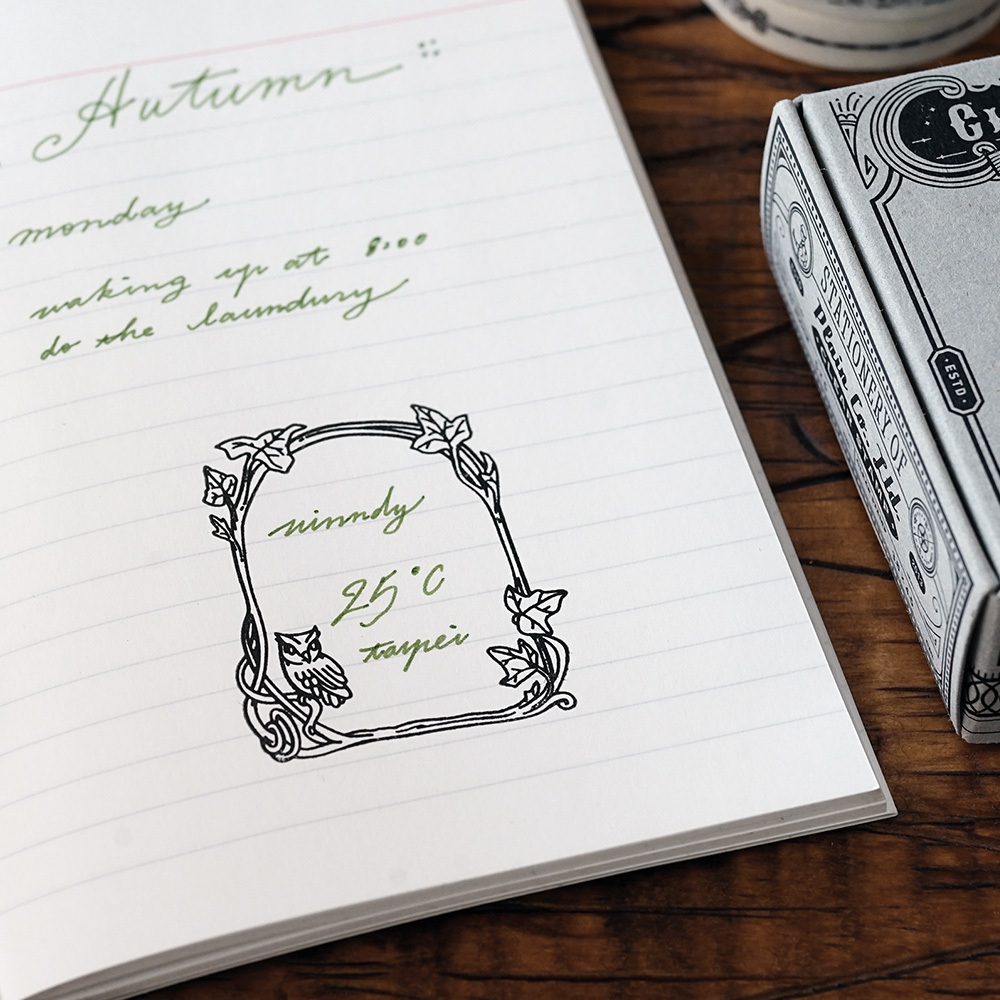 Autumn
monday
waking up at 8:00
do the laundury
winndy
25°C
taipei
ESTD
STATIONERY OF
Plain Co., Ltd.